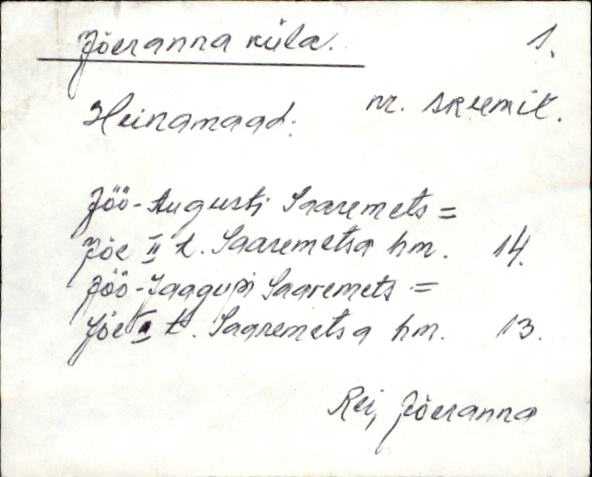 Jõeranna küla. 1.
Heinamaad: nr. skeemil.
Jöö-Augusti Saaremets =
Jõe II t. Saaremetsa hm. 14.
Jöö-Jaagupi Saaremets =
Jõe I t. Saaremetsa hm. 13.
Rei, Jõeranna